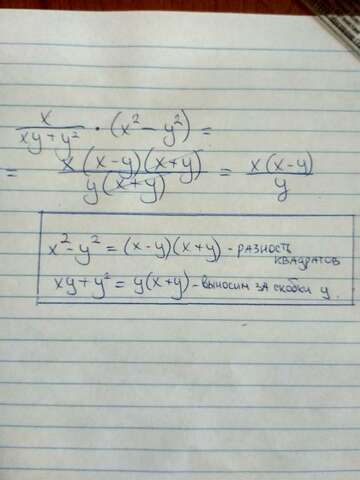 x/(xy+y²) · (x² - y²) =
= x(x-y)(x+y)/y(x+y) = x(x-y)/y
x² - y² = (x-y)(x+y) - разность
квадратов
xy+y² = y(x+y) - выносим за скобки y.